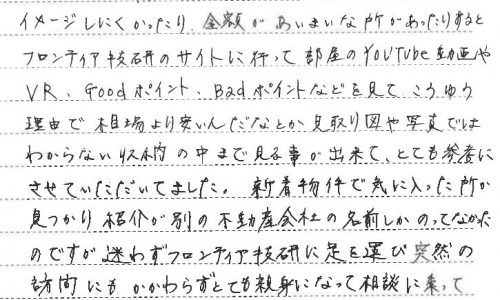 イメージしにくかったり、金額があいまいな所があったりすると
フロンティア技研のサイトに行って部屋のYOUTUBE動画や
VR、Goodポイント、Badポイントなどを見てこうゆう
理由で相場より安いんだなとか見取り図や写真では
わからない収納の中まで見る事が出来て、とても参考に
させていただいてました。新着物件で気に入った所が
見つかり紹介が別の不動産会社の名前しかのってなかた
のですが迷わずフロンティア技研に足を運び突然の
訪問にもかかわらずとても親身になって相談に乗って